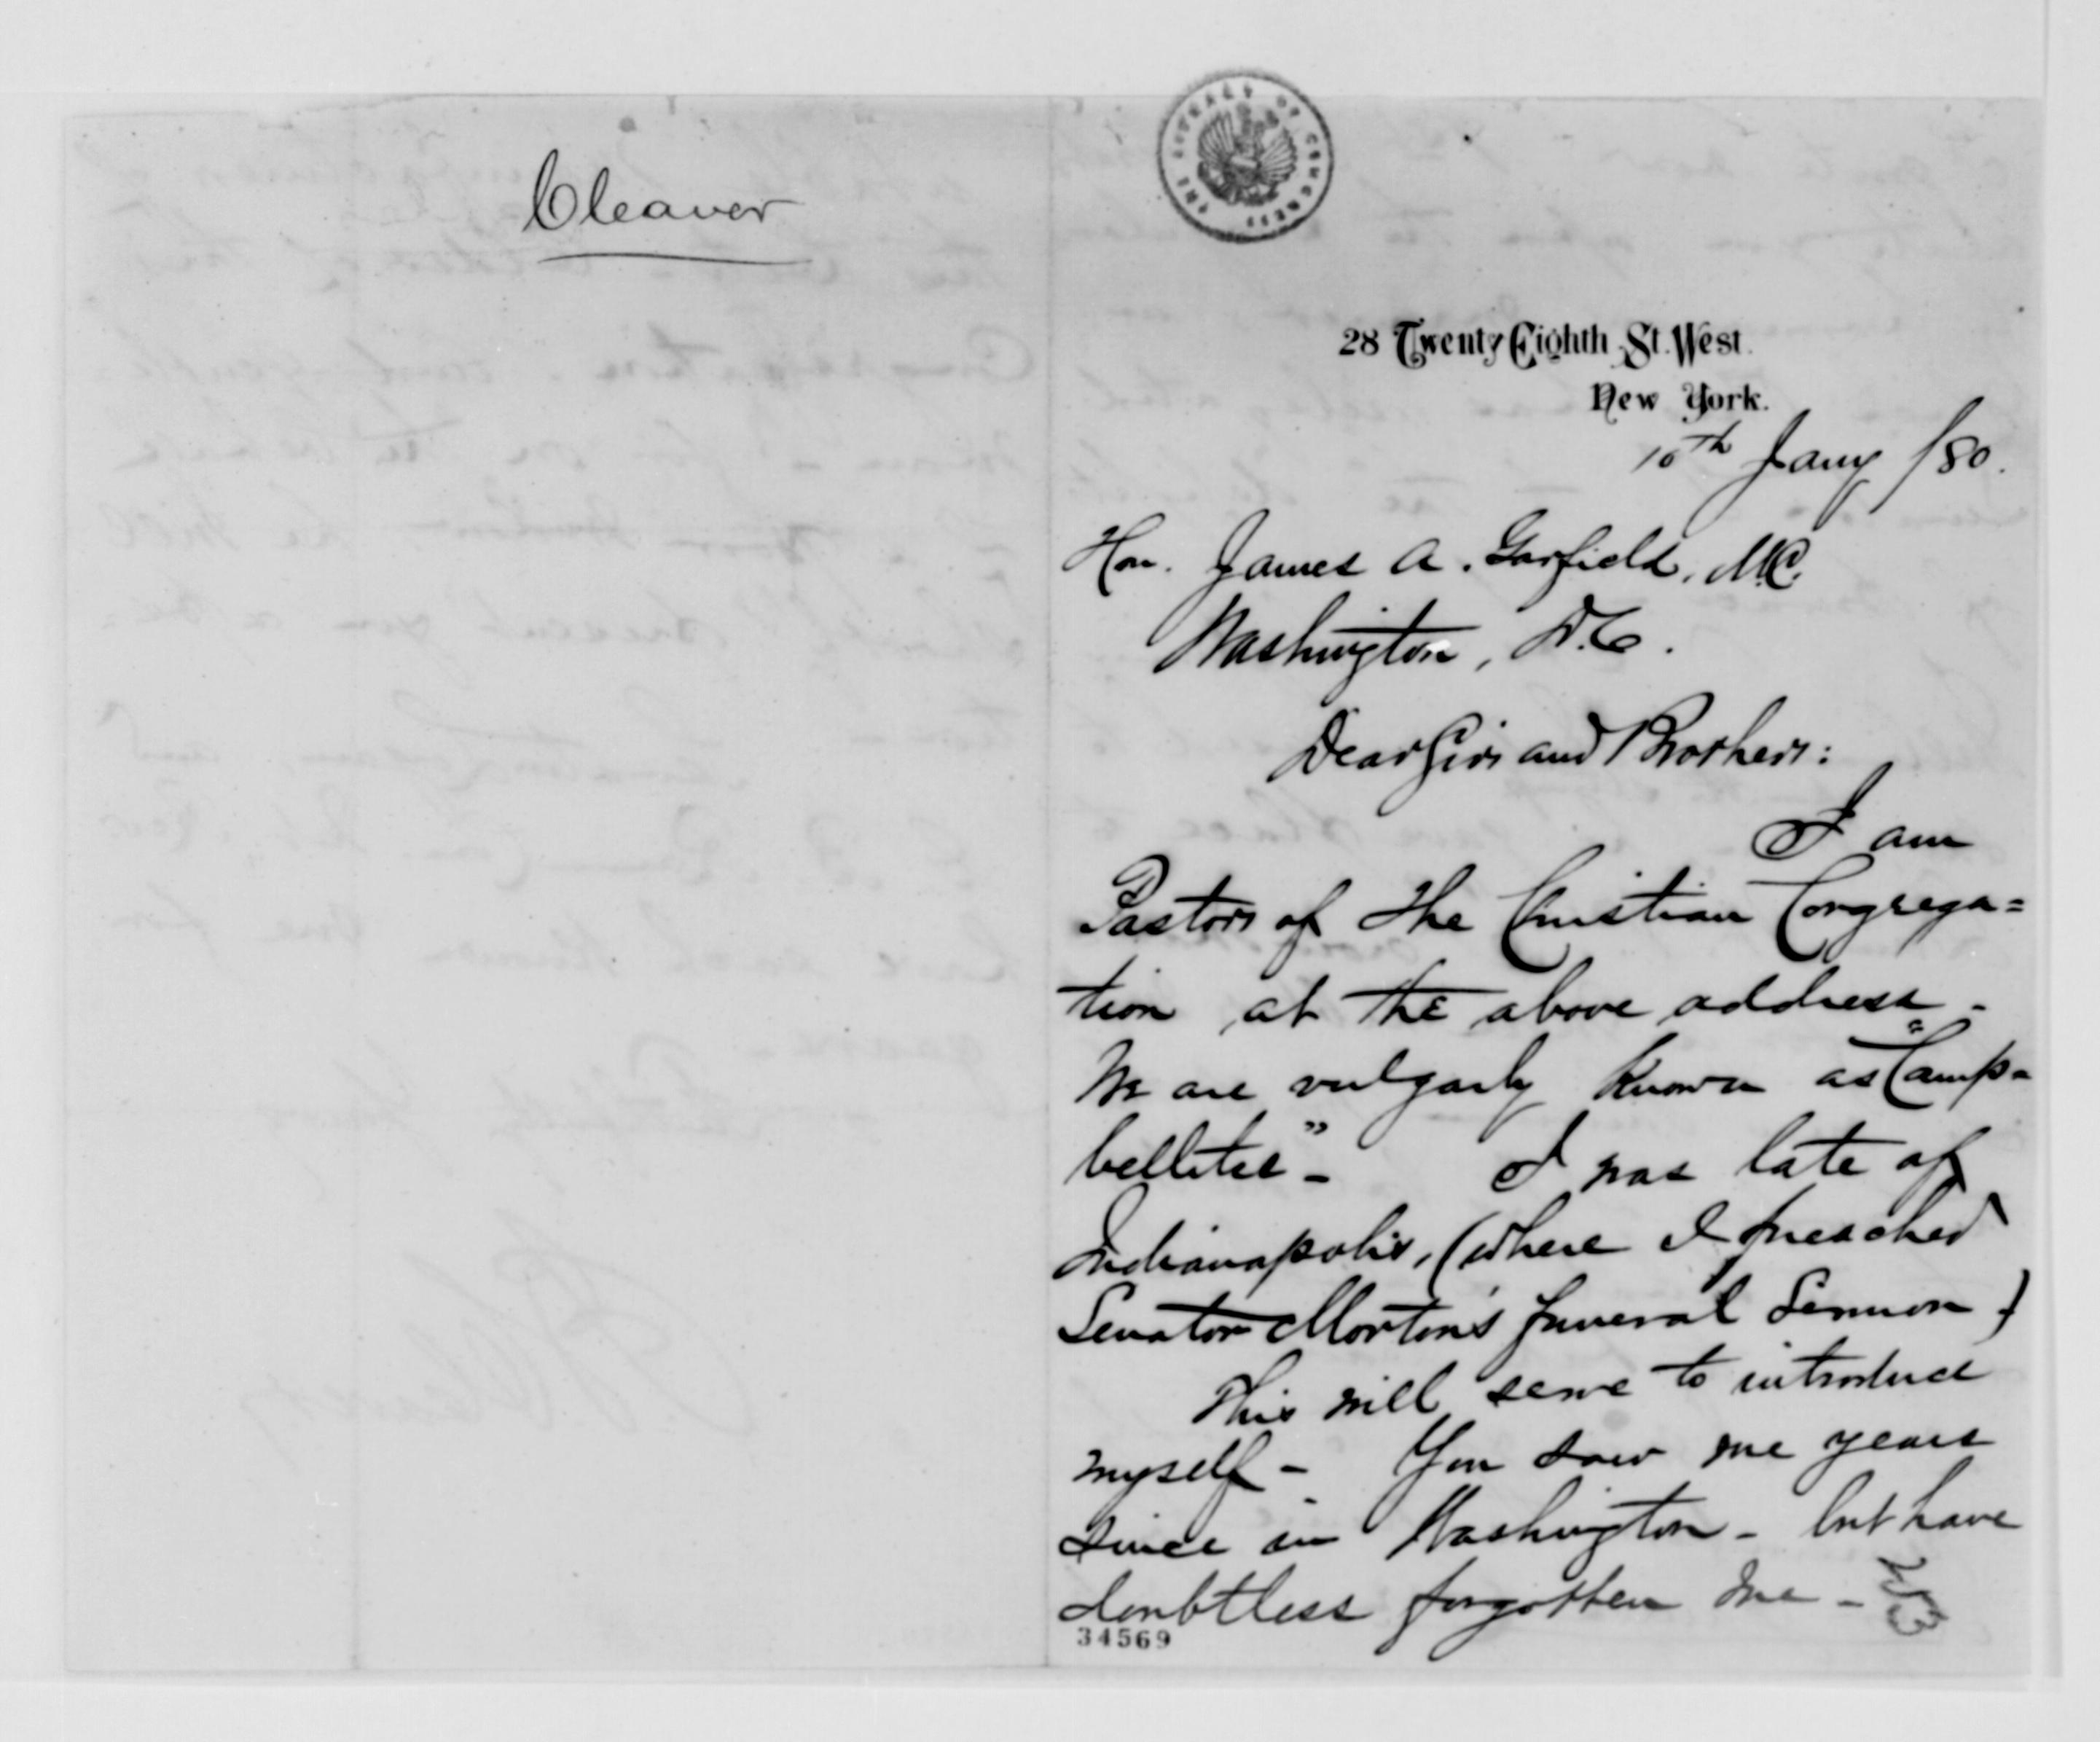 Cleaver
THE LIBRARY OF CONGRESS
28 Twenty Eighth St. West.
New York.
10th Jany /80.
Hon. James A. Garfield, M.C.
Washington, D.C.
Dear Sir and Brother:
I am
Pastor of the Christian Congrega=
tion at the above address -
We are vulgarly known as "Camp-
bellites" - I was late of
Indianapolis, (where I preached
Senator Morton's funeral sermon)
This will serve to introduce
myself - You saw me years
since in Washington - but have
doubtless forgotten me -
34569